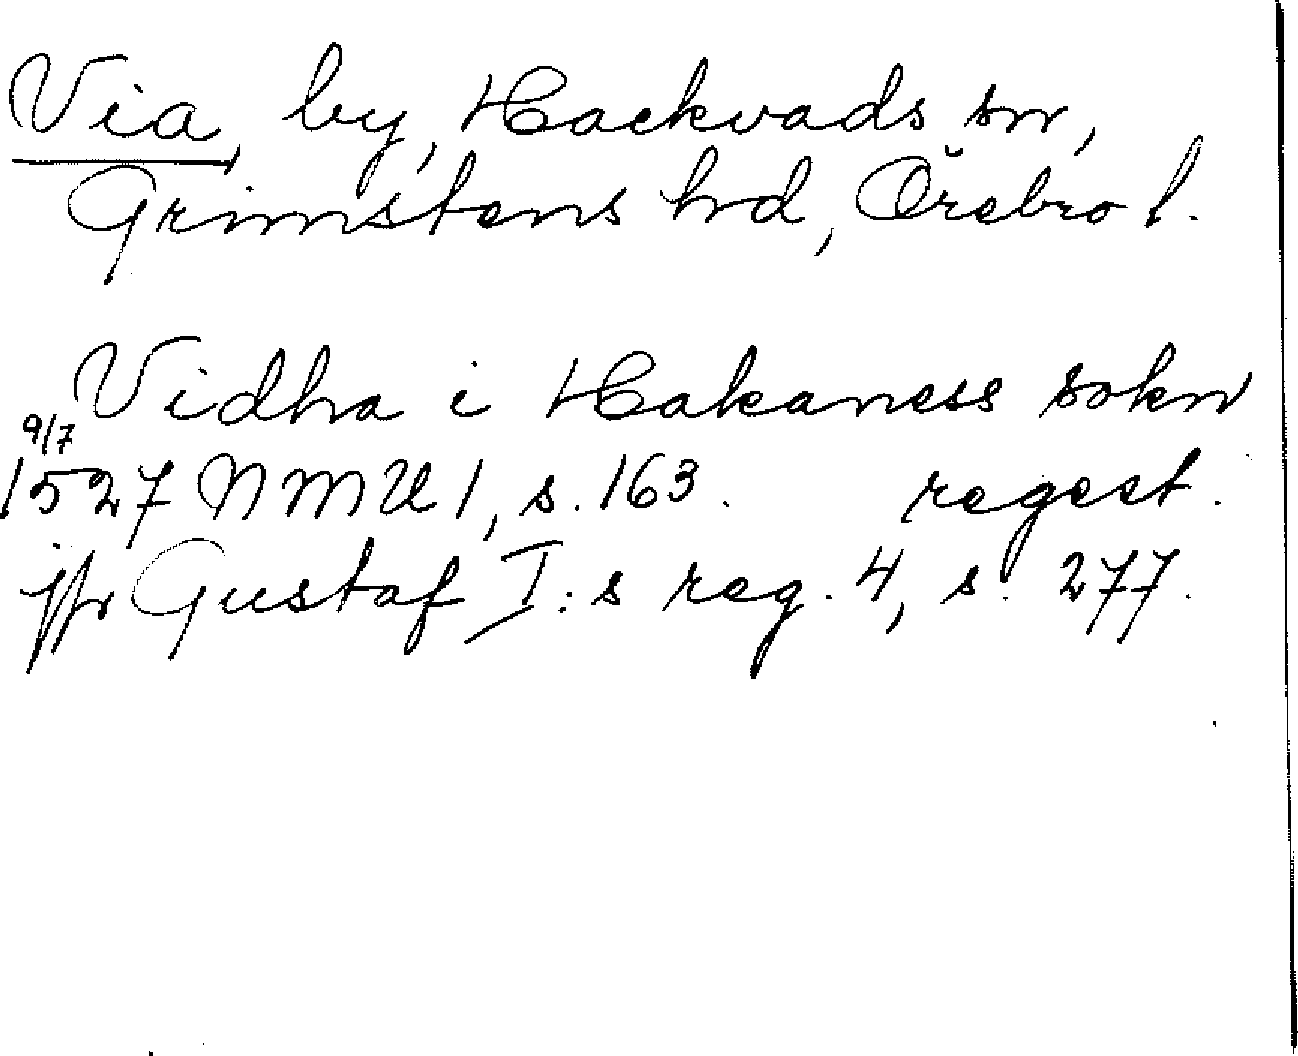 Via, by, Hackvads sn,
Grimstens hd, Örebro l.
Vidha i Hakaness sokn
9/7
1527 NMU 1, s. 163. regest.
jfr Gustaf I:s reg. 4, s. 277.